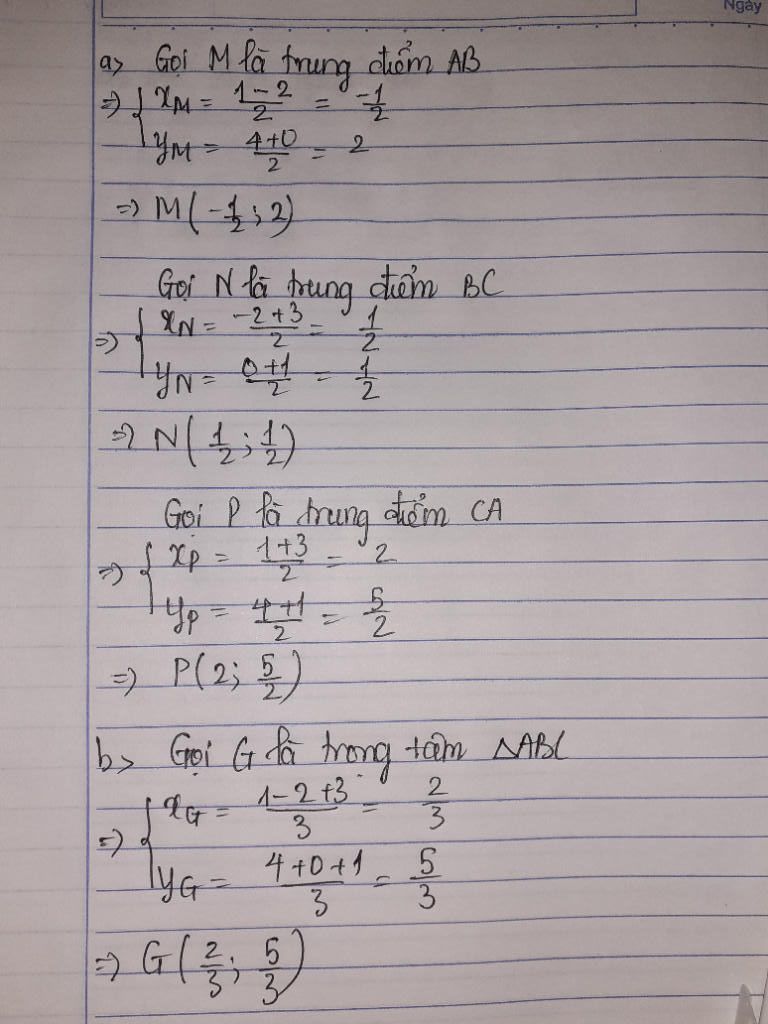 Ngày
a> Gọi M là trung điểm AB
=> { xM = (1-2)/2 = -1/2
yM = (4+0)/2 = 2
=> M(-1/2; 2)
Gọi N là trung điểm BC
=> { xN = (-2+3)/2 = 1/2
yN = (0+1)/2 = 1/2
=> N(1/2; 1/2)
Gọi P là trung điểm CA
=> { xP = (1+3)/2 = 2
yP = (4+1)/2 = 5/2
=> P(2; 5/2)
b> Gọi G là trong tâm △ABC
=> { xG = (1-2+3)/3 = 2/3
yG = (4+0+1)/3 = 5/3
=> G(2/3; 5/3)